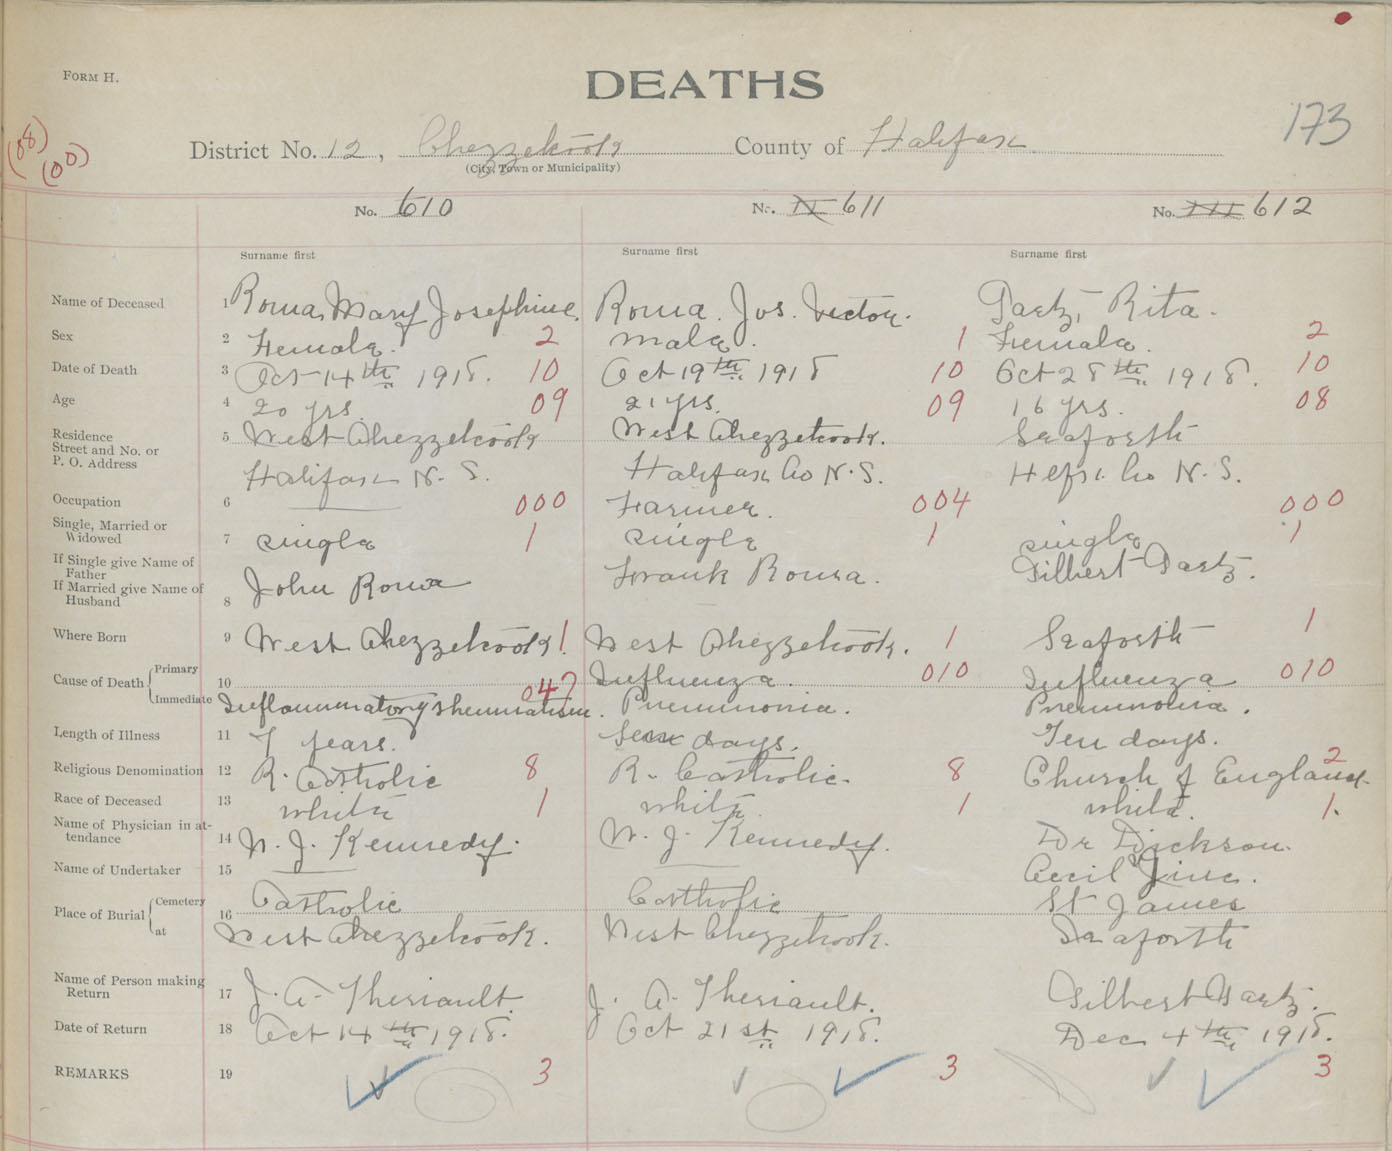 FORM H.
DEATHS
173
(08)
(00)
District No. 12, Chezzetcook County of Halifax
(City, Town or Municipality)
No. 610 No. II 611 No. III 612
Surname first Surname first Surname first
Name of Deceased 1 Roma, Mary Josephine. Roma. Jos. Victor. Gaetz, Rita.
Sex 2 Female. 2 male. 1 Female. 2
Date of Death 3 Oct 14th 1918. 10 Oct 19th 1918 10 Oct 28th 1918. 10
Age 4 20 yrs. 09 21 yrs. 09 16 yrs. 08
Residence 5 West Chezzetcook West Chezzetcook. Seaforth
Street and No. or
P. O. Address Halifax N.S. Halifax Co N.S. Hlfx. Co N.S.
Occupation 6 000 Farmer. 004 000
Single, Married or
Widowed 7 single 1 single 1 single 1
If Single give Name of
Father
If Married give Name of
Husband 8 John Roma Frank Roma. Gilbert Gaetz.
Where Born 9 West Chezzetcook 1 West Chezzetcook. 1 Seaforth 1
Cause of Death Primary 10 047 Influenza. 010 Influenza 010
Immediate Inflammatory rheumatism. Pneumonia. Pneumonia.
Length of Illness 11 7 years. days. Ten days.
Religious Denomination 12 R. Catholic 8 R. Catholic. 8 Church of England. 2
Race of Deceased 13 white 1 white 1 white. 1.
Name of Physician in at-
tendance 14 W. J. Kennedy. W. J. Kennedy. Dr Dickson.
Name of Undertaker 15 Cecil
Place of Burial Cemetery 16 Catholic Catholic St James
at West Chezzetcook. West Chezzetcook. Seaforth
Name of Person making
Return 17 J. A. Theriault J. A. Theriault. Gilbert Gaetz.
Date of Return 18 Oct 14th 1918. Oct 21st 1918. Dec 4th 1918.
REMARKS 19 3 3 3